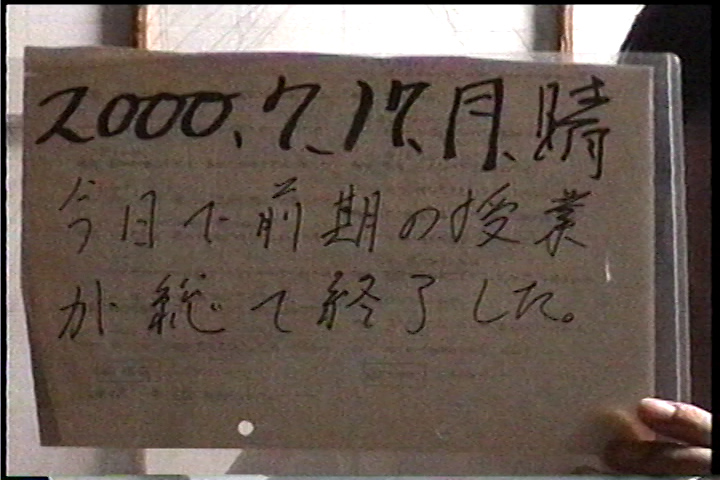 2000、7、17、月、晴
今日で前期の授業
が総て終了した。